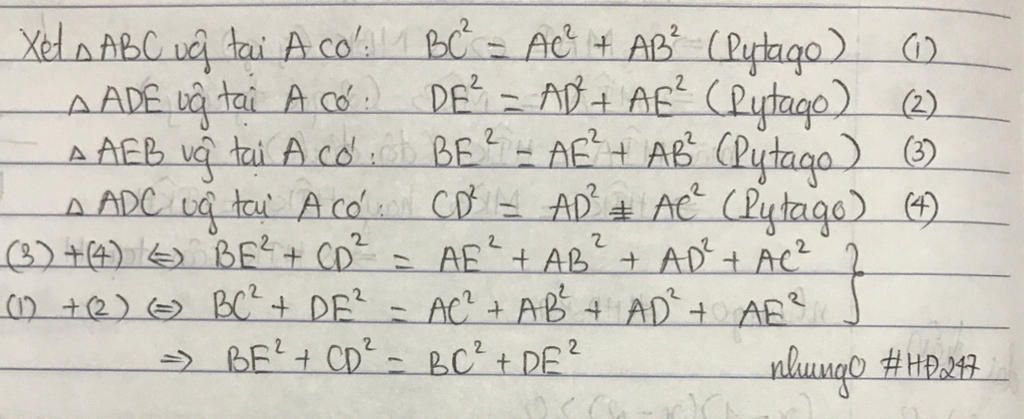 Xét △ABC vg̑ tại A có: BC² = AC² + AB² (Pytago) (1)
△ADE vg̑ tại A có: DE² = AD² + AE² (Pytago) (2)
△AEB vg̑ tại A có: BE² = AE² + AB² (Pytago) (3)
△ADC vg̑ tại A có: CD² = AD² + AC² (Pytago) (4)
(3) + (4) ⇔ BE² + CD² = AE² + AB² + AD² + AC²
(1) + (2) ⇔ BC² + DE² = AC² + AB² + AD² + AE²
⇒ BE² + CD² = BC² + DE² nhung0 #HĐ247